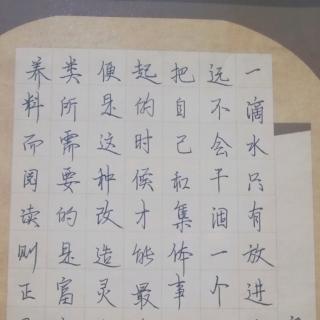 一滴水只有放进
远不会干涸一个
把自己和集体事
起的时候才能最
便是这种改造灵
类所需要的是富
养料而阅读则正